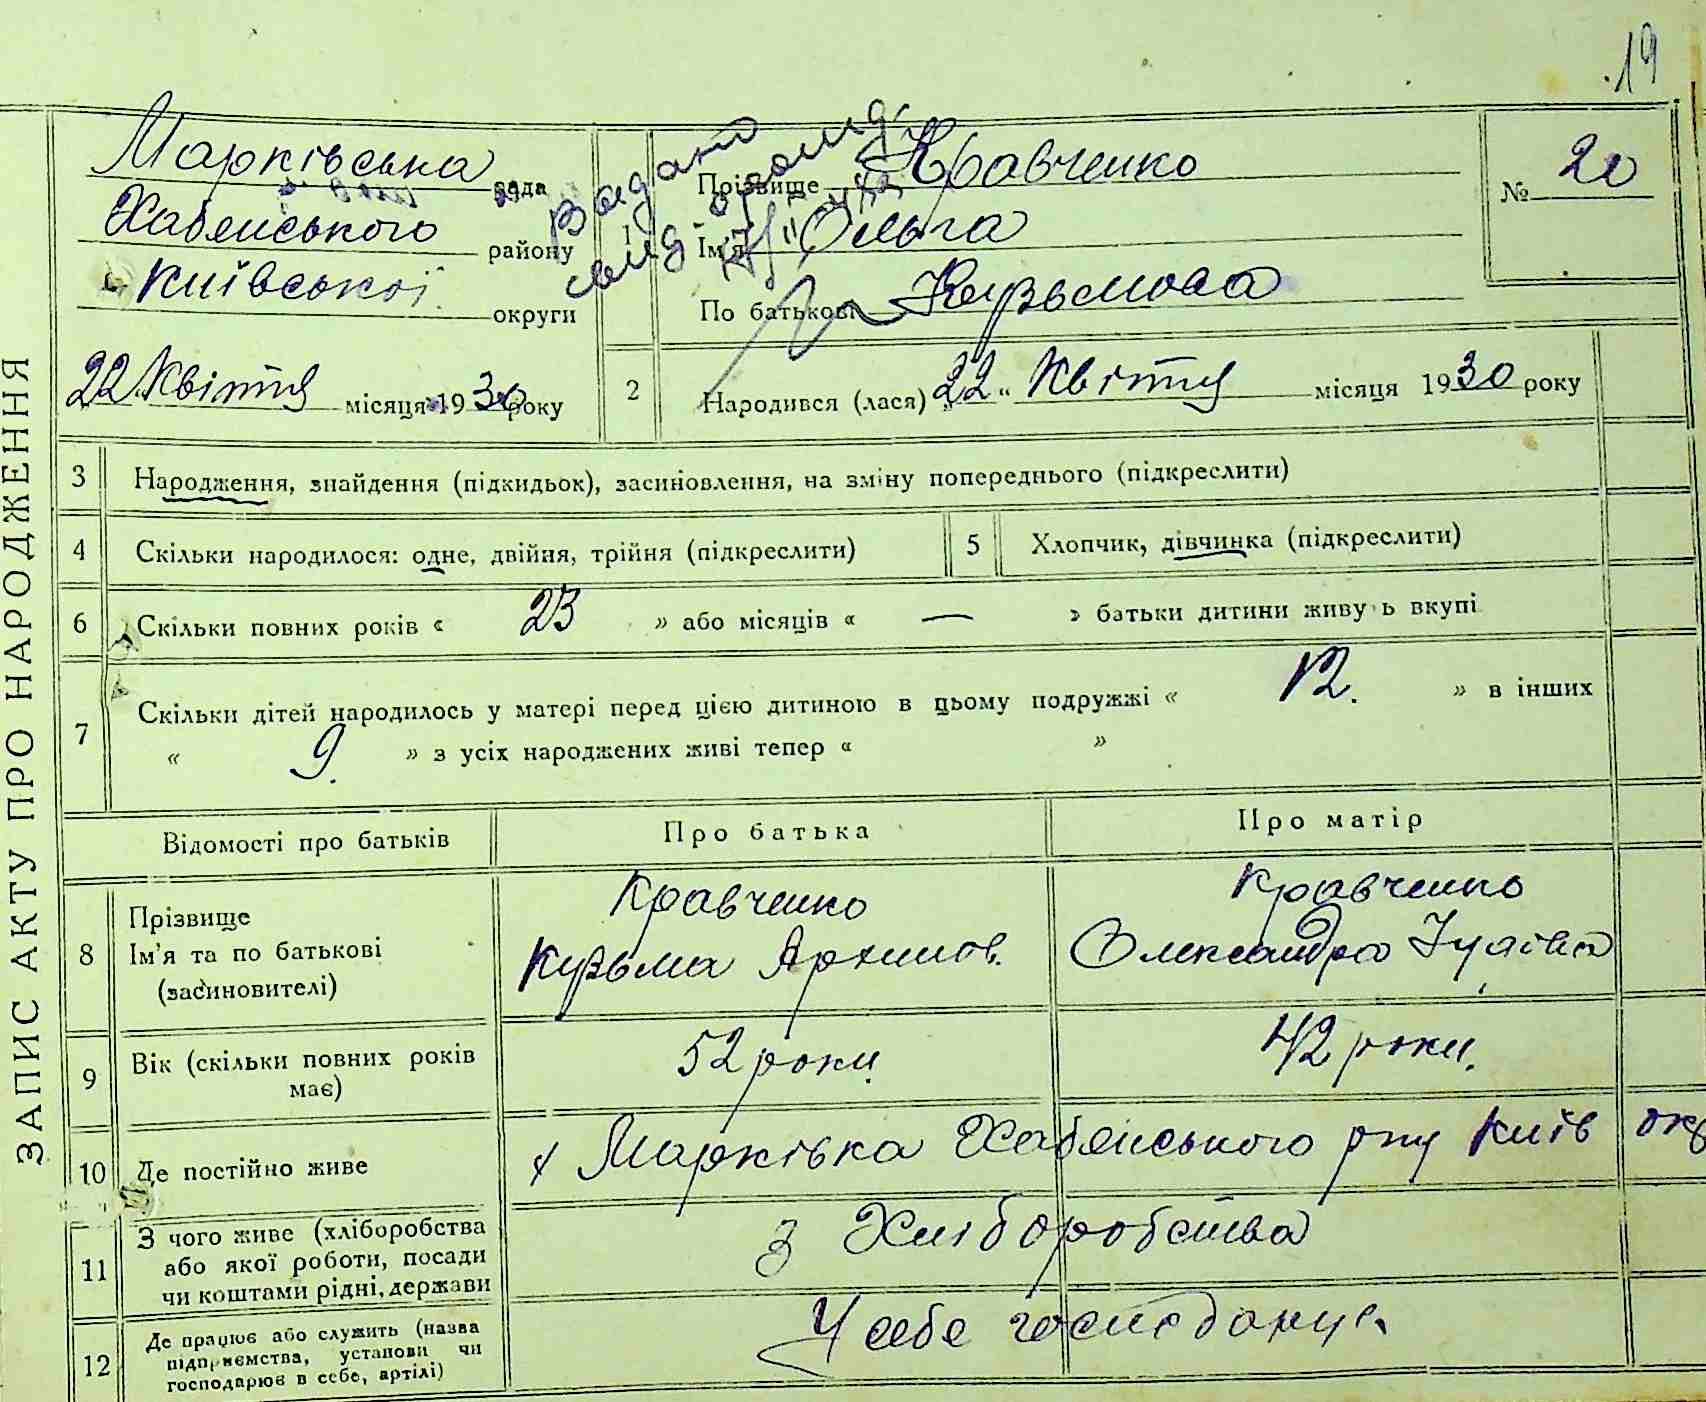 19
ЗАПИС АКТУ ПРО НАРОДЖЕННЯ
Марківська рада
Хабенського району
Київської округи
22 Квітня місяця 1930 року
Видано
1 Прізвище Кравченко
Ім'я Ольга
По батькові Кузьмова
№ 20
2 Народився (лася) „22“ Квітня місяця 1930 року
3 Народження, знайдення (підкидьок), засиновлення, на зміну попереднього (підкреслити)
4 Скільки народилося: одне, двійня, трійня (підкреслити)
5 Хлопчик, дівчинка (підкреслити)
6 Скільки повних років « 23 » або місяців « — » батьки дитини живуть вкупі
7 Скільки дітей народилось у матері перед цією дитиною в цьому подружжі « 12. » в інших
« 9. » з усіх народжених живі тепер « »
Відомості про батьків Про батька Про матір
8 Прізвище Кравченко Кравченко
Ім'я та по батькові Кузьма Архипов. Олександра
(засиновителі)
9 Вік (скільки повних років має) 52 роки 42 роки.
10 Де постійно живе Марківка Хабенського рну Київ окр
11 З чого живе (хліборобства або якої роботи, посади чи коштами рідні, держави З Хліборобства
12 Де працює або служить (назва підприємства, установи чи господарює в себе, артілі) У себе господарує